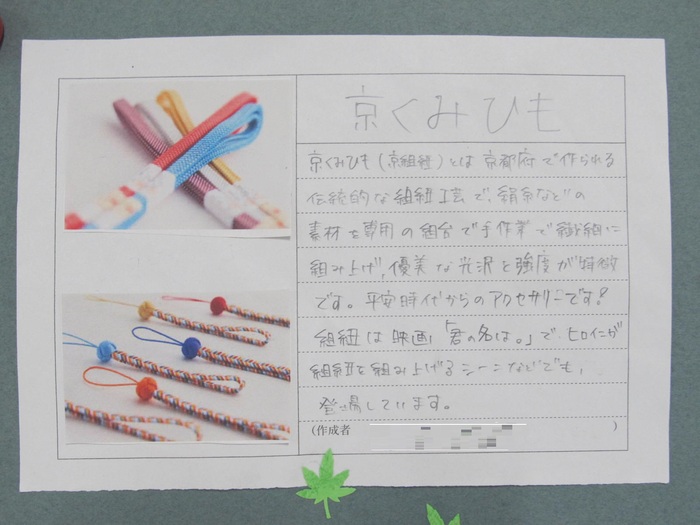 京くみひも
京くみひも(京組紐)とは京都府で作られる
伝統的な組紐工芸で、絹糸などの
素材を専用の組台で手作業で繊細に
組み上げ、優美な光沢と強度が特徴
です。平安時代からのアクセサリーです!
組紐は映画「君の名は。」で、ヒロインが
組紐を組み上げるシーンなどでも、
登場しています。
(作成者 )